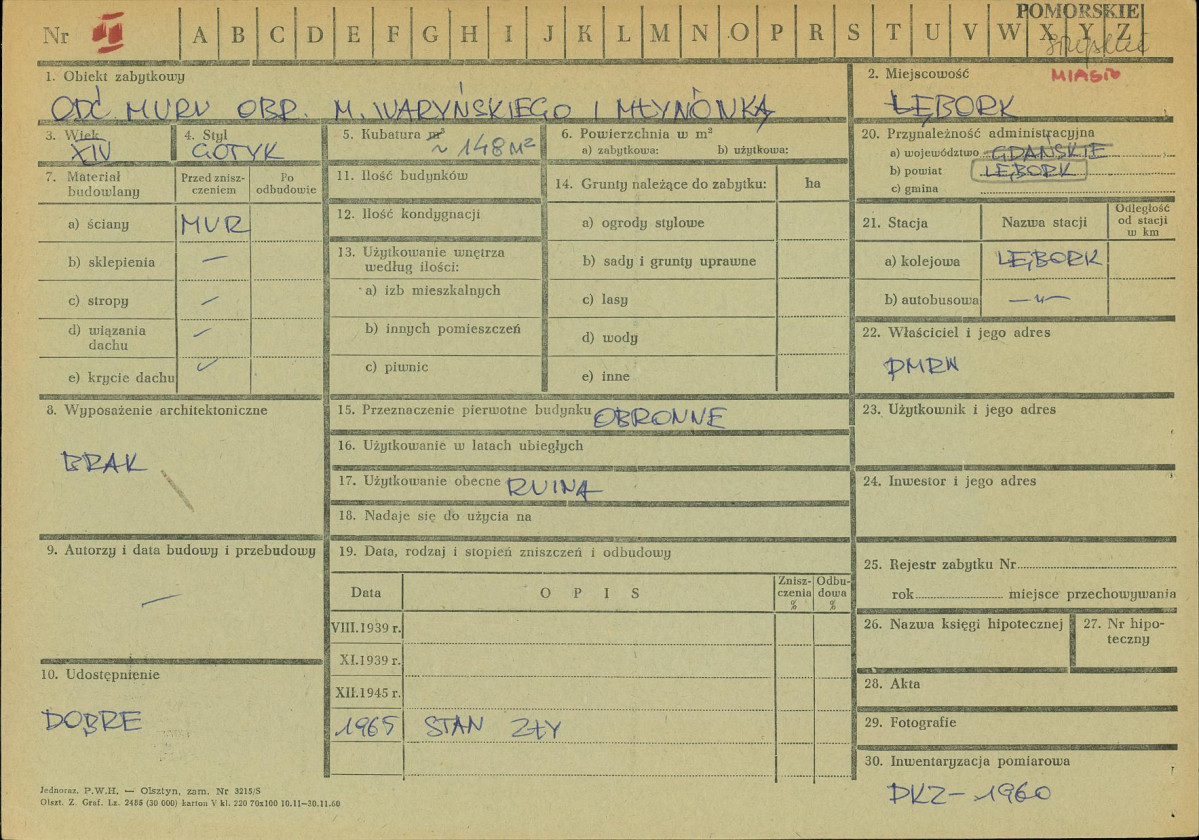 POMORSKIE
Nr II A B C D E F G H I J K L M N O P R S T U V W X Y Z
słupskie
MIASTO
1. Obiekt zabytkowy
ODC. MURU OBR. M. WARYŃSKIEGO I MŁYNÓWKĄ
2. Miejscowość
LĘBORK
3. Wiek
XIV
4. Styl
GOTYK
5. Kubatura m³
~ 148 M²
6. Powierzchnia w m²
a) zabytkowa: b) użytkowa:
20. Przynależność administracyjna
a) województwo GDAŃSKIE
b) powiat LĘBORK
c) gmina
7. Materiał budowlany
Przed zniszczeniem
Po odbudowie
a) ściany MUR
b) sklepienia —
c) stropy —
d) wiązania dachu —
e) krycie dachu
11. Ilość budynków
12. Ilość kondygnacji
13. Użytkowanie wnętrza według ilości:
a) izb mieszkalnych
b) innych pomieszczeń
c) piwnic
14. Grunty należące do zabytku: ha
a) ogrody stylowe
b) sady i grunty uprawne
c) lasy
d) wody
e) inne
21. Stacja Nazwa stacji Odległość od stacji w km
a) kolejowa LĘBORK
b) autobusowa —„—
22. Właściciel i jego adres
PMRN
8. Wyposażenie architektoniczne
BRAK
15. Przeznaczenie pierwotne budynku OBRONNE
16. Użytkowanie w latach ubiegłych
17. Użytkowanie obecne RUINA
18. Nadaje się do użycia na
23. Użytkownik i jego adres
24. Inwestor i jego adres
9. Autorzy i data budowy i przebudowy
—
19. Data, rodzaj i stopień zniszczeń i odbudowy
Data O P I S Zniszczenia % Odbudowa %
VIII.1939 r.
XI.1939 r.
XII.1945 r.
1965 STAN ZŁY
25. Rejestr zabytku Nr
rok miejsce przechowywania
26. Nazwa księgi hipotecznej
27. Nr hipoteczny
10. Udostępnienie
DOBRE
28. Akta
29. Fotografie
30. Inwentaryzacja pomiarowa
PKZ - 1960
Jednoraz. P.W.H. — Olsztyn, zam. Nr 3215/S
Olszt. Z. Graf. Lz. 2485 (30 000) karton V kl. 220 70x100 10.11—30.11.60